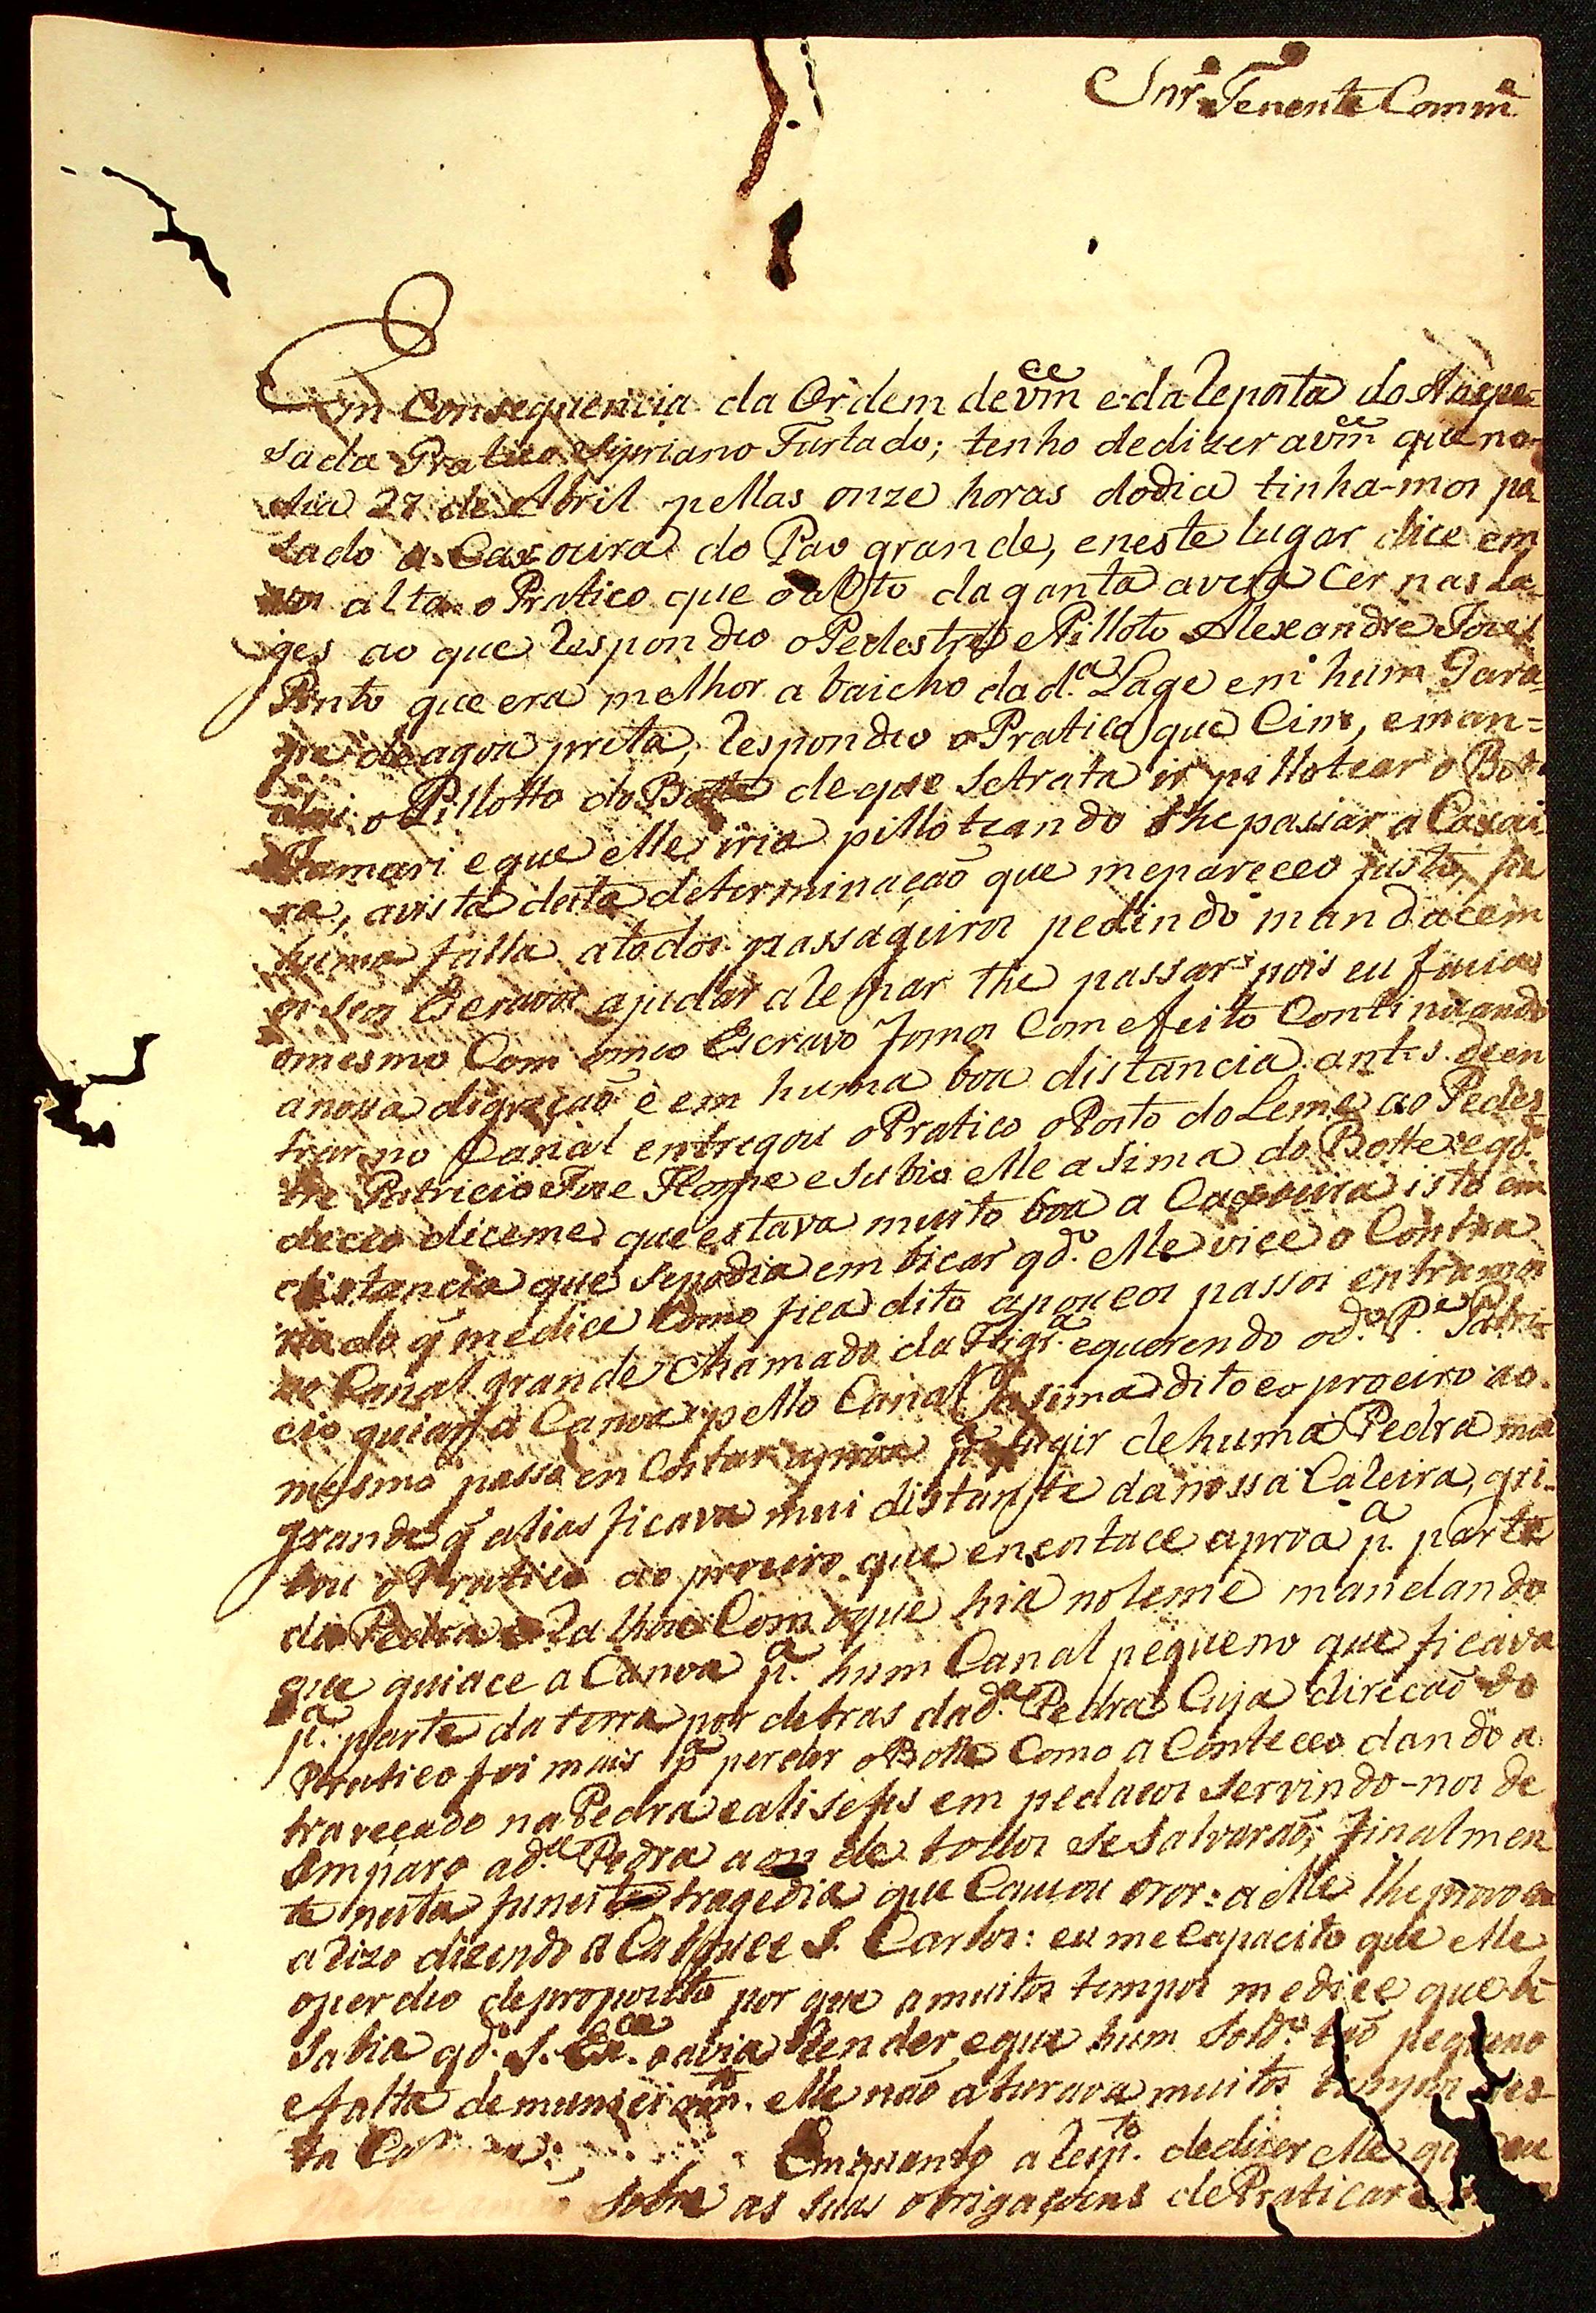 Snr Tenente Comm.e
Em Consequencia da Ordem devm.ce e da Reposta do
sada Pratico Sipriano Furtado; tenho dedizer avm.ce que no
dia 27 de Abril pellas onze horas dodia tinha-mos pa
sado a Caxoeira do Pao grande, eneste lugar dice em
alta o Pratico que o alto daganta avera Cer nas La-
ges ao que Respondeo oPedestre ePilloto Alexandre Joze
Pinto que era melhor a baicho dad.a Lage em hum Gara-
pe de agoa preta, Respondeo oPratico que Cim, eman=
dei o Pillotto do Botte deque Setrata ir pillotear o Bote
Jamari eque elle iria pilloteando the passar a Caxoei
ra, avista desta determinação que mepareceo justo, fis
huma falla atodos passageiros pedindo mandacem
os seos Escravos ajudar a Remar the passar pois eu facia
omesmo Com omeo Escravo fomos Com efeito Continuando
anossa digreção e em huma boa distancia antes deen
trar no Canal entregou oPratico oPosto do Leme ao Pedes
tre Patricio Joze e Subio elle a Sima do Botte e qd.o
deceo diceme que estava muito boa a Caxoeira isto em
distancia que Sepodia em bicar qd.o elle vice o Contra
rio do q̃ medice Como fica dito apoucos passos entramos
no Canal grande chamado da equerendo od.o P.e Patri-
cio guiar a Canoa pello Canal a Sima dito eo proeiro ao
mesmo passo en Costar aproa p.a fugir dehuma Pedra mui
grande q̃ alias ficava mui distante danossa Cateira, gri-
tou oPratico ao proeiro que encostace aproa p.a parte
da Pedra e Ralhou Com oque hia noleme mandando
que guiace a Canoa p.a hum Canal pequeno que ficava
p.a parte da terra por detras dad.a Pedra Cuja direcão do
Pratico foi mais p.a perder oBotte Como a Conteceo dando a
travecado na Pedra eali sefes em pedacos servindo-nos de
Amparo ad.a Pedra aonde todos se Salvarão; finalmen
te nesta funesta tragedia que Cauzou oror: a elle lheprovo
a Rizo dizendo a S. Carlos: eu me Capacito que elle
operdeo deproposito por que amuitos tempos medice que
Sabia qd.o S. Ex.ca avia Render eque hum Sold.o tão pequeno
efalta demuniciam. elle não aturava muitos tempos
ta
Emquanto a Resp.to dedizer elle que eu
Sobre as Suas obrigaçoens dePratica